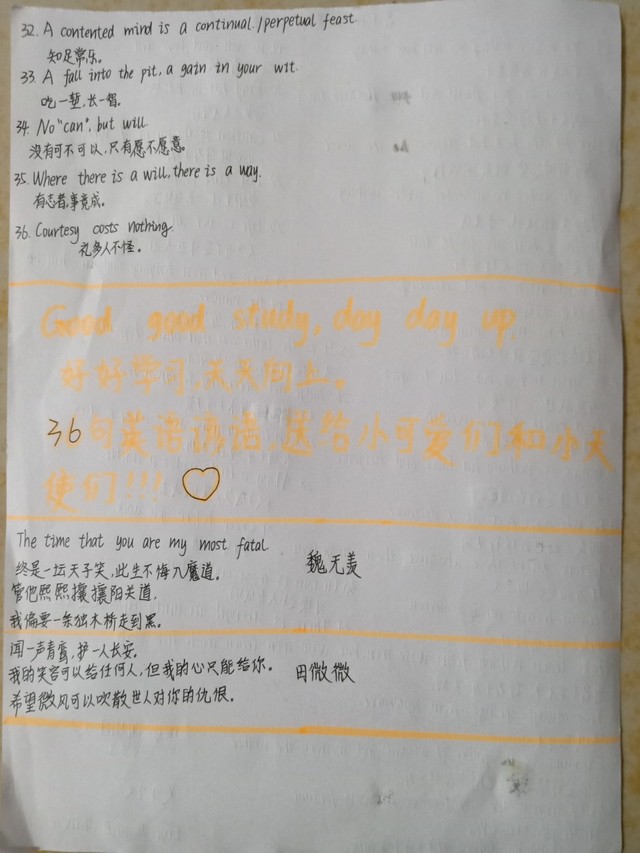 32. A contented mind is a continual./perpetual feast.
知足常乐。
33. A fall into the pit, a gain in your wit.
吃一堑,长一智。
34. No "can", but will.
没有可不可以,只有愿不愿意。
35. Where there is a will, there is a way.
有志者,事竟成。
36. Courtesy costs nothing.
礼多人不怪。
Good good study, day day up.
好好学习,天天向上。
36句英语谚语,送给小可爱们和小天
使们!!!
The time that you are my most fatal.
终是一坛天子笑,此生不悔入魔道。 魏无羡
管他熙熙攘攘阳关道,
我偏要一条独木桥走到黑。
闻一声青鸾,护一人长安。
我的笑容可以给任何人,但我的心只能给你。 田微微
希望微风可以吹散世人对你的仇恨。